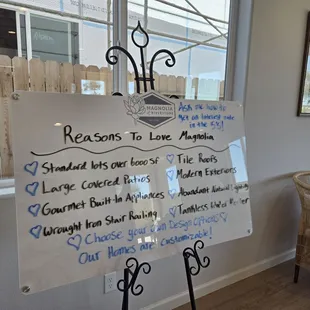 MAGNOLIA
Ask me how to
get an interest rate
in the 5's!
Reasons To Love Magnolia
Standard lots over 6000 SF
Large Covered Patios
Gourmet Built-In Appliances
Wrought Iron Stair Railing
Tile Roofs
Modern Exteriors
Abundant Natural Lighting
Tankless Water
Choose your own Design Options
Our Homes are customizable!